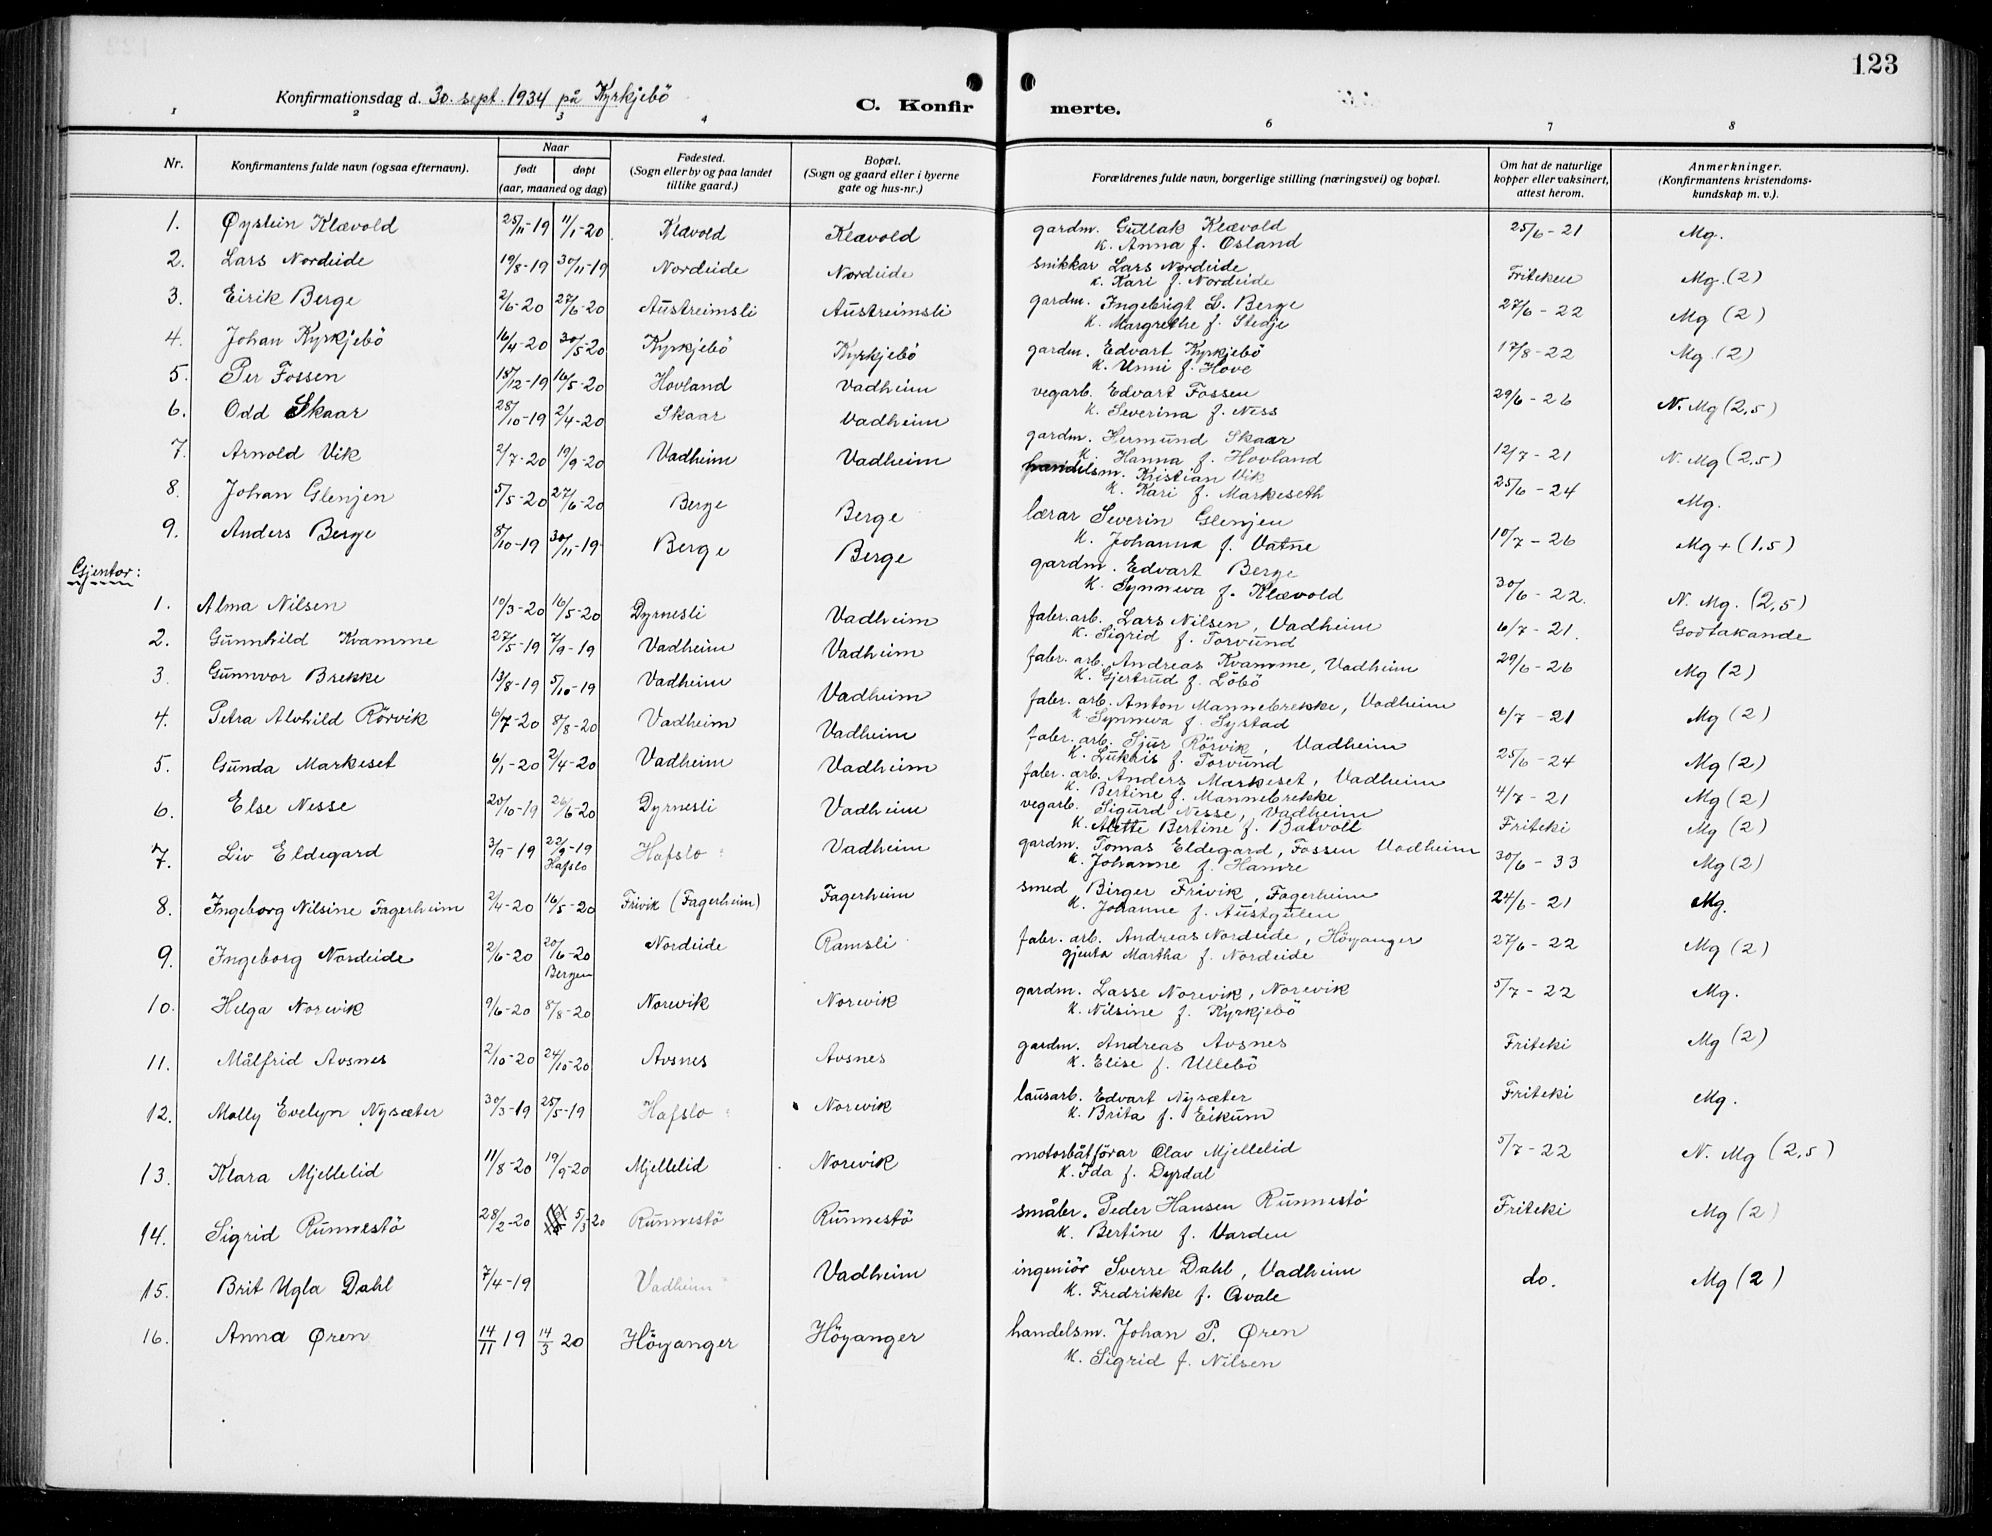 123
Konfirmationsdag d. 30. sept. 1934 på Kyrkjebö
C. Konfirmerte.
1 2 3 4 6 7 8
Nr. Konfirmantens fulde navn (ogsaa efternavn). Naar født døpt (aar, maaned og dag) Fødested. (Sogn eller by og paa landet tillike gaard.) Bopæl. (Sogn og gaard eller i byerne gate og hus-nr.) Forældrenes fulde navn, borgerlige stilling (næringsvei) og bopæl. Om hat de naturlige kopper eller vaksinert, attest herom. Anmerkninger. (Konfirmantens kristendomskundskap m. v.).
1. Øystein Klævold 25/11-19 11/1-20 Klævold Klævold gardm. Gullak Klævold 25/6-21 Mg.
k. Anna f. Østand
2. Lars Nordeide 19/8-19 30/11-19 Nordeide Nordeide snikkar Lars Nordeide Friteken Mg. (2)
k. Kari f. Nordeide
3. Eirik Berge 2/6-20 27/6-20 Austreimsli Austreimsli gardm. Ingebrigt L. Berge 27/6-22 Mg (2)
k. Margrethe f. Stedje
4. Johan Kyrkjebö 16/4-20 30/5-20 Kyrkjebö Kyrkjebö gardm. Edvart Kyrkjebö 17/8-22 Mg. (2)
k. Unni f. Hove
5. Per Fossen 18/12-19 16/5-20 Hovland Vadheim vegarb. Edvart Fossen 29/6-26 N. Mg (2,5)
k. Severina f. Ness
6. Odd Skaar 28/10-19 2/4-20 Skaar Vadheim gardm. Hermund Skaar 12/7-21 N. Mg (2,5)
k. Hanna f. Hovland
7. Arnold Vik 2/7-20 19/9-20 Vadheim Vadheim handelsm. Kristian Vik 25/6-24 Mg.
k. Kari f. Markeseth
8. Johan Glenjen 5/5-20 27/6-20 Berge Berge lærar Severin Glenjen 10/7-26 Mg + (1,5)
k. Johanna f. Vatne
9. Anders Berge 8/10-19 30/11-19 Berge Berge gardm. Edvart Berge 30/6-22. N. Mg. (2,5)
k. Synneva f. Klævold
Gjentor:
1. Alma Nilsen 10/3-20 16/5-20 Dyrnesli Vadheim fabr. arb. Lars Nilsen, Vadheim 6/7-21. Godtakande
k. Sigrid f. Torvund
2. Gunnhild Kvamme 27/5-19 7/9-19 Vadheim Vadheim fabr. arb. Andreas Kvamme, Vadheim 29/6-26 Mg (2)
k. Gjertrud f. Löbö
3. Gunnvor Brekke 13/8-19 5/10-19 Vadheim Vadheim fabr. arb. Anton Mannebrekke, Vadheim 6/7-21 Mg (2)
k. Synneva f. Systad
4. Petra Alvhild Rörvik 6/7-20 8/8-20 Vadheim Vadheim fabr. arb. Sjur Rörvik, Vadheim 25/6-24 Mg (2)
k. Lukris f. Torvund
5. Gunda Markeset 6/1-20 2/4-20 Vadheim Vadheim fabr. arb. Anders Markeset, Vadheim 4/7-21 Mg (2)
k. Bertine f. Mannebrekke
6. Else Nesse 20/10-19 26/6-20 Dyrnesli Vadheim vegarb. Sigurd Nesse, Vadheim Friteki Mg (2)
k. Alette Bertine f. Batvoll
7. Liv Eldegard 3/9-19 22/9-19 Hafslo Hafslo Vadheim gardm. Tomas Eldegard, Fossen Vadheim 30/6-33 Mg (2)
k. Johanne f. Hamre
8. Ingeborg Nilsine Fagerheim 2/4-20 16/5-20 Frivik (Fagerheim) Fagerheim smed Birger Frivik, Fagerheim 24/6-21 Mg.
k. Johanne f. Austgulen
9. Ingeborg Nordeide 2/6-20 20/6-20 Bergen Nordeide Ramsli fabr. arb. Andreas Nordeide, Höyanger 27/6-22 Mg (2)
gjenta Martha f. Nordeide
10. Helga Norevik 9/6-20 8/8-20 Norevik Norevik gardm. Lasse Norevik, Norevik 5/7-22 Mg.
k. Nilsine f. Kyrkjebö
11. Målfrid Avsnes 2/10-20 24/10-20 Avsnes Avsnes gardm. Andreas Avsnes Friteki Mg (2)
k. Elise f. Ullebö
12. Molly Evelyn Nysæter 30/3-19 25/5-19 Hafslo Norevik lausarb. Edvart Nysæter Friteki Mg.
k. Brita f. Eikum
13. Klara Mjellelid 11/8-20 19/9-20 Mjellelid Norevik motorbåtförar Olav Mjellelid 5/7-22 N. Mg (2,5)
k. Ida f. Dyrdal
14. Sigrid Runnestö 28/2-20 5/3-20 Runnestö Runnestö småbr. Peder Hansen Runnestö Friteki Mg (2)
k. Bertine f. Varden
15. Brit Ugla Dahl 7/4-19 Vadheim Vadheim ingeniör Sverre Dahl, Vadheim do. Mg (2)
k. Fredrikke f. Qvale
16. Anna Øren 14/11 19 14/3 20 Höyanger Höyanger handelsm. Johan P. Øren
k. Sigrid f. Nilsen